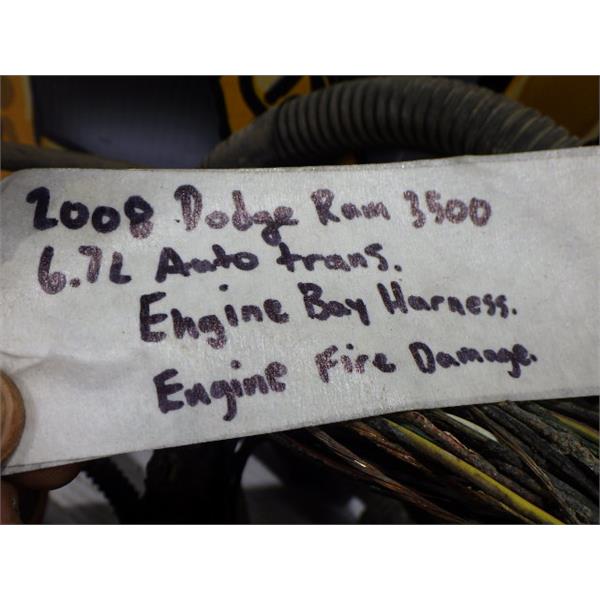 2008 Dodge Ram 3500
6.7L Auto trans.
Engine Bay Harness.
Engine Fire Damage.